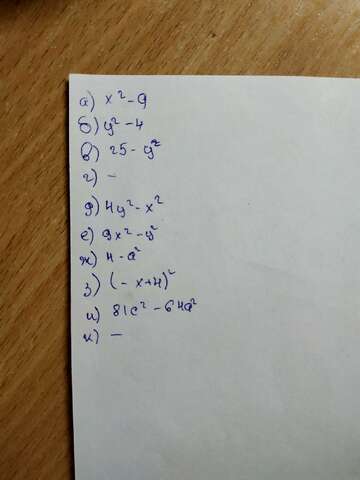 а) x² - 9
б) y² - 4
в) 25 - y²
г) -
д) 4y² - x²
е) 9x² - y²
ж) 4 - a²
з) (- x + 4)²
и) 81c² - 64a²
к) —